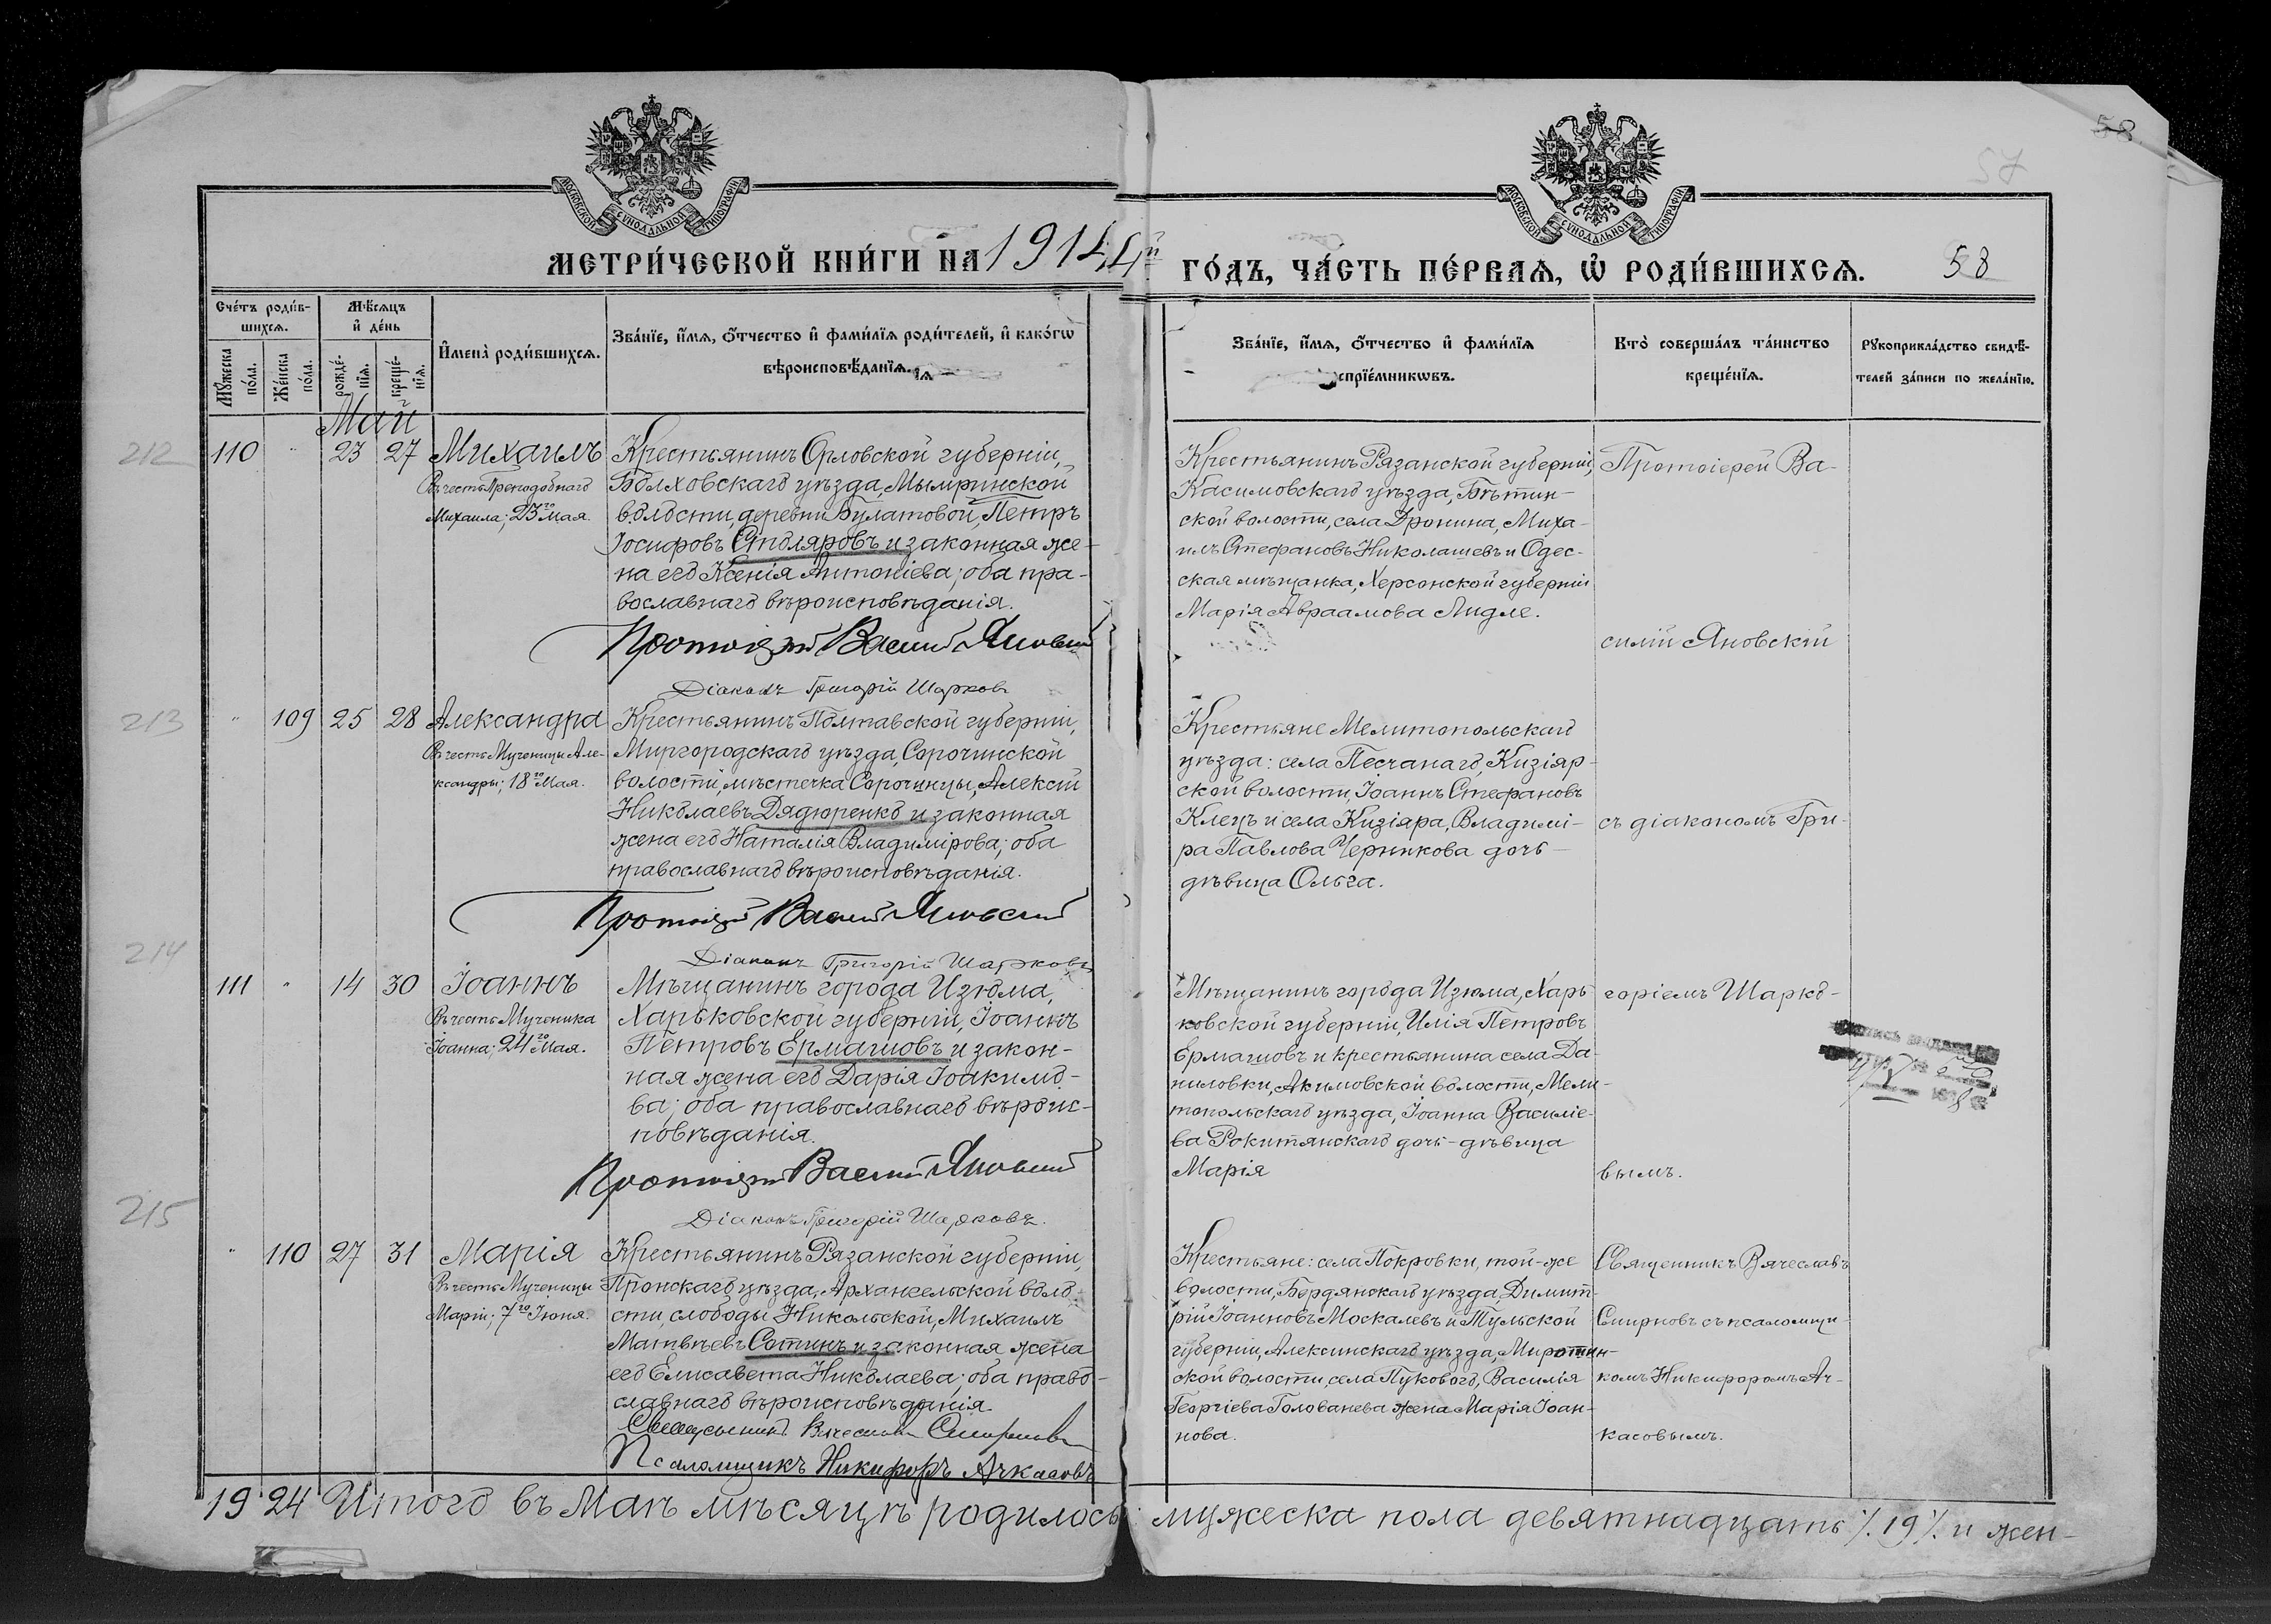 58
57
МОСКОВСКОЙ СѴНОДАЛЬНОЙ ТИПОГРАФІИ
МОСКОВСКОЙ СѴНОДАЛЬНОЙ ТИПОГРАФІИ
МЕТРИ́ЧЕСКОЙ КНИ́ГИ НА 1914й ГО́ДЪ, ЧА́СТЬ ПЕ́РВАѦ, Ѡ҆ РОДИ́ВШИХСѦ. 58
Сче́тъ роди́в-
шихсѧ.
Мѣ́сѧцъ
и҆ де́нь
Мꙋ́жеска
по́ла.
Же́нска
по́ла.
рожде́-
нїѧ.
креще́-
нїѧ.
И҆мена̀ роди́вшихсѧ.
Зва́нїе, и҆́мѧ, ѻ҆́тчество и҆ фами́лїѧ роди́телей, и҆ како́гѡ
вѣроисповѣ́данїѧ.
Зва́нїе, и҆́мѧ, ѻ҆́тчество и҆ фами́лїѧ
спрїе́мникѡвъ.
Кто̀ соверша́лъ та́инство
креще́нїѧ.
Рꙋкоприкла́дство свидѣ́-
телей за́писи по жела́нїю.
Май
212
110 " 23 27 Михаилъ
Въ честь Преподобнаго
Михаила; 23го Мая.
Крестьянинъ Орловской губерніи,
Болховскаго уѣзда, Мымринской
волости, деревни Булатовой, Петръ
Іосифовъ Столяровъ и законная же-
на его Ксенія Антоніева; оба пра-
вославнаго вѣроисповѣданія.
Протоіерей Василій Яновскій
Діаконъ Григорій Шарковъ
Крестьянинъ Рязанской губерніи,
Касимовскаго уѣзда, Бѣтин-
ской волости, села Дронина, Миха-
илъ Стефановъ Николашевъ и Одес-
ская мѣщанка, Херсонской губерніи
Марія Авраамова Лидле.
Протоіерей Ва-
силій Яновскій
213
" 109 25 28 Александра
Въ честь Мученицы Але-
ксандры; 18го Мая.
Крестьянинъ Полтавской губерніи,
Миргородскаго уѣзда, Сорочинской
волости, мѣстечка Сорочинцы, Алексій
Николаевъ Дядюренко и законная
жена его Наталія Владимірова; оба
православнаго вѣроисповѣданія.
Протоіерей Василій Яновскій
Діаконъ Григорій Шарковъ
Крестьяне Мелитопольскаго
уѣзда: села Песчанаго, Кизіяр-
ской волости, Іоаннъ Стефановъ
Клецъ и села Кизіяра, Владимі-
ра Павлова Черникова дочь-
дѣвица Ольга.
съ діакономъ Гри-
214
111 " 14 30 Іоаннъ
Въ честь Мученика
Іоанна; 24го Мая.
Мѣщанинъ города Изюма,
Харьковской губерніи, Іоаннъ
Петровъ Ермашовъ и закон-
ная жена его Дарія Іоакимо-
ва; оба православнаго вѣроис-
повѣданія.
Протоіерей Василій Яновскій
Діаконъ Григорій Шарковъ.
Мѣщанинъ города Изюма, Харь-
ковской губерніи, Илія Петровъ
Ермашовъ и крестьянина села Да-
ниловки, Акимовской волости, Мели-
топольскаго уѣзда, Іоанна Василіе-
ва Рокитянскаго дочь-дѣвица
Марія
горіемъ Шарко-
вымъ.
215
" 110 27 31 Марія
Въ честь Мученицы
Маріи; 7го Іюня.
Крестьянинъ Рязанской губерніи,
Пронскаго уѣзда, Архангельской воло-
сти, слободы Никольской, Михаилъ
Матвѣевъ Сотинъ и законная жена
его Елисавета Николаева; оба право-
славнаго вѣроисповѣданія.
Священникъ Вячеславъ Смирновъ
Псаломщикъ Никифоръ Ачкасовъ
Крестьяне: села Покровки, той-же
волости, Бердянскаго уѣзда, Димит-
рій Іоанновъ Москалевъ и Тульской
губерніи, Алексинскаго уѣзда, Миротин-
ской волости, села Пуковаго, Василія
Георгіева Голованева жена Марія Іоан-
нова.
Священникъ Вячеславъ
Смирновъ съ псаломщи-
комъ Никифоромъ Ач-
касовымъ.
19 24 Итого въ Маѣ мѣсяцѣ родилось: мужеска пола девятнадцать /.19/. и жен-